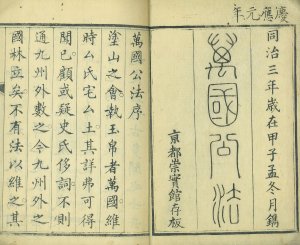 慶應元年
同治三年歳在甲子孟冬月鐫
萬國公法
京都崇實館存板
萬國公法序
塗山之會執玉帛者萬國維
時厶氏宅厶土其詳弗可得
聞已顧或疑史氏侈詞不則
通九州外數之今九州外之
國林立矣不有法以維之其